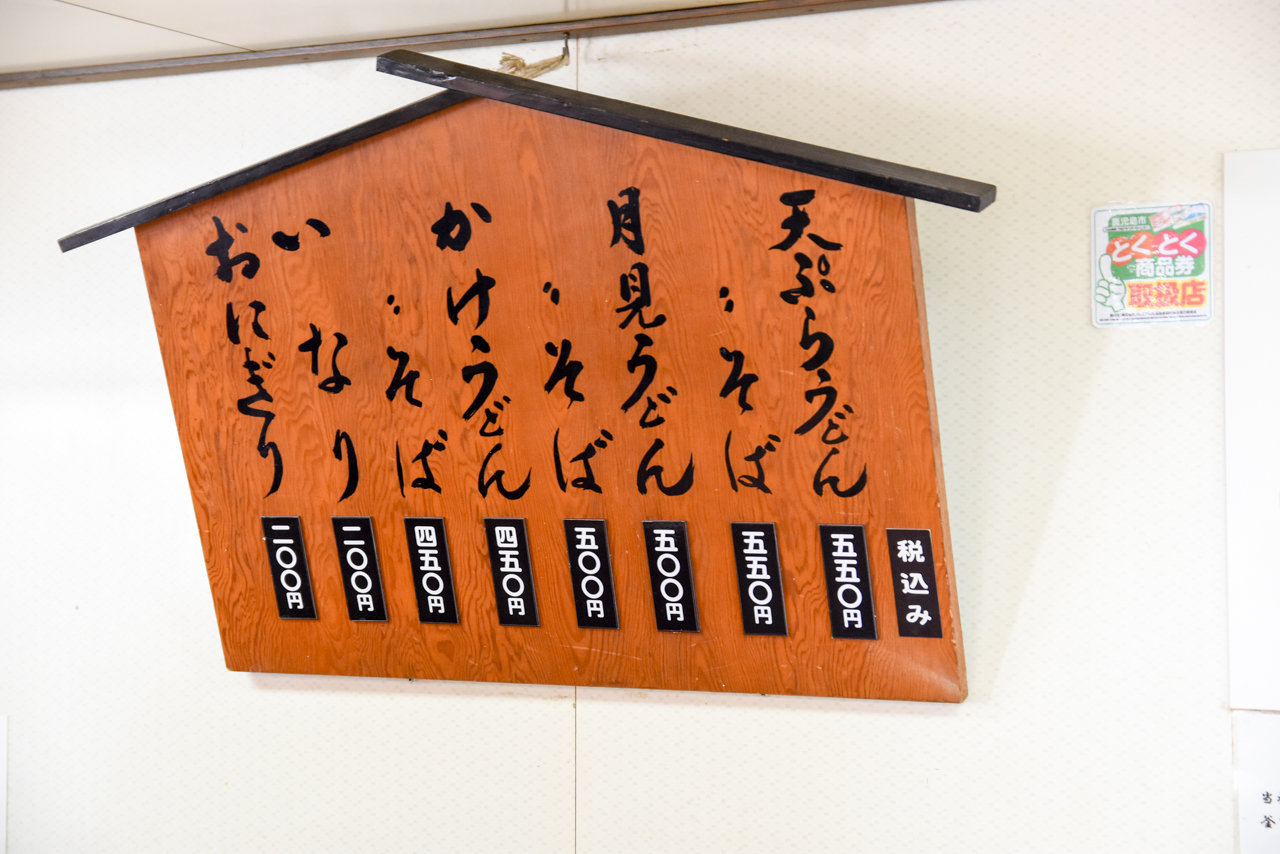 税込み
天ぷらうどん
五五〇円
〃そば
五五〇円
月見うどん
五〇〇円
〃そば
五〇〇円
かけうどん
四五〇円
〃そば
四五〇円
いなり
二〇〇円
おにぎり
二〇〇円
鹿児島市
とくとく
商品券
取扱店
当
釜